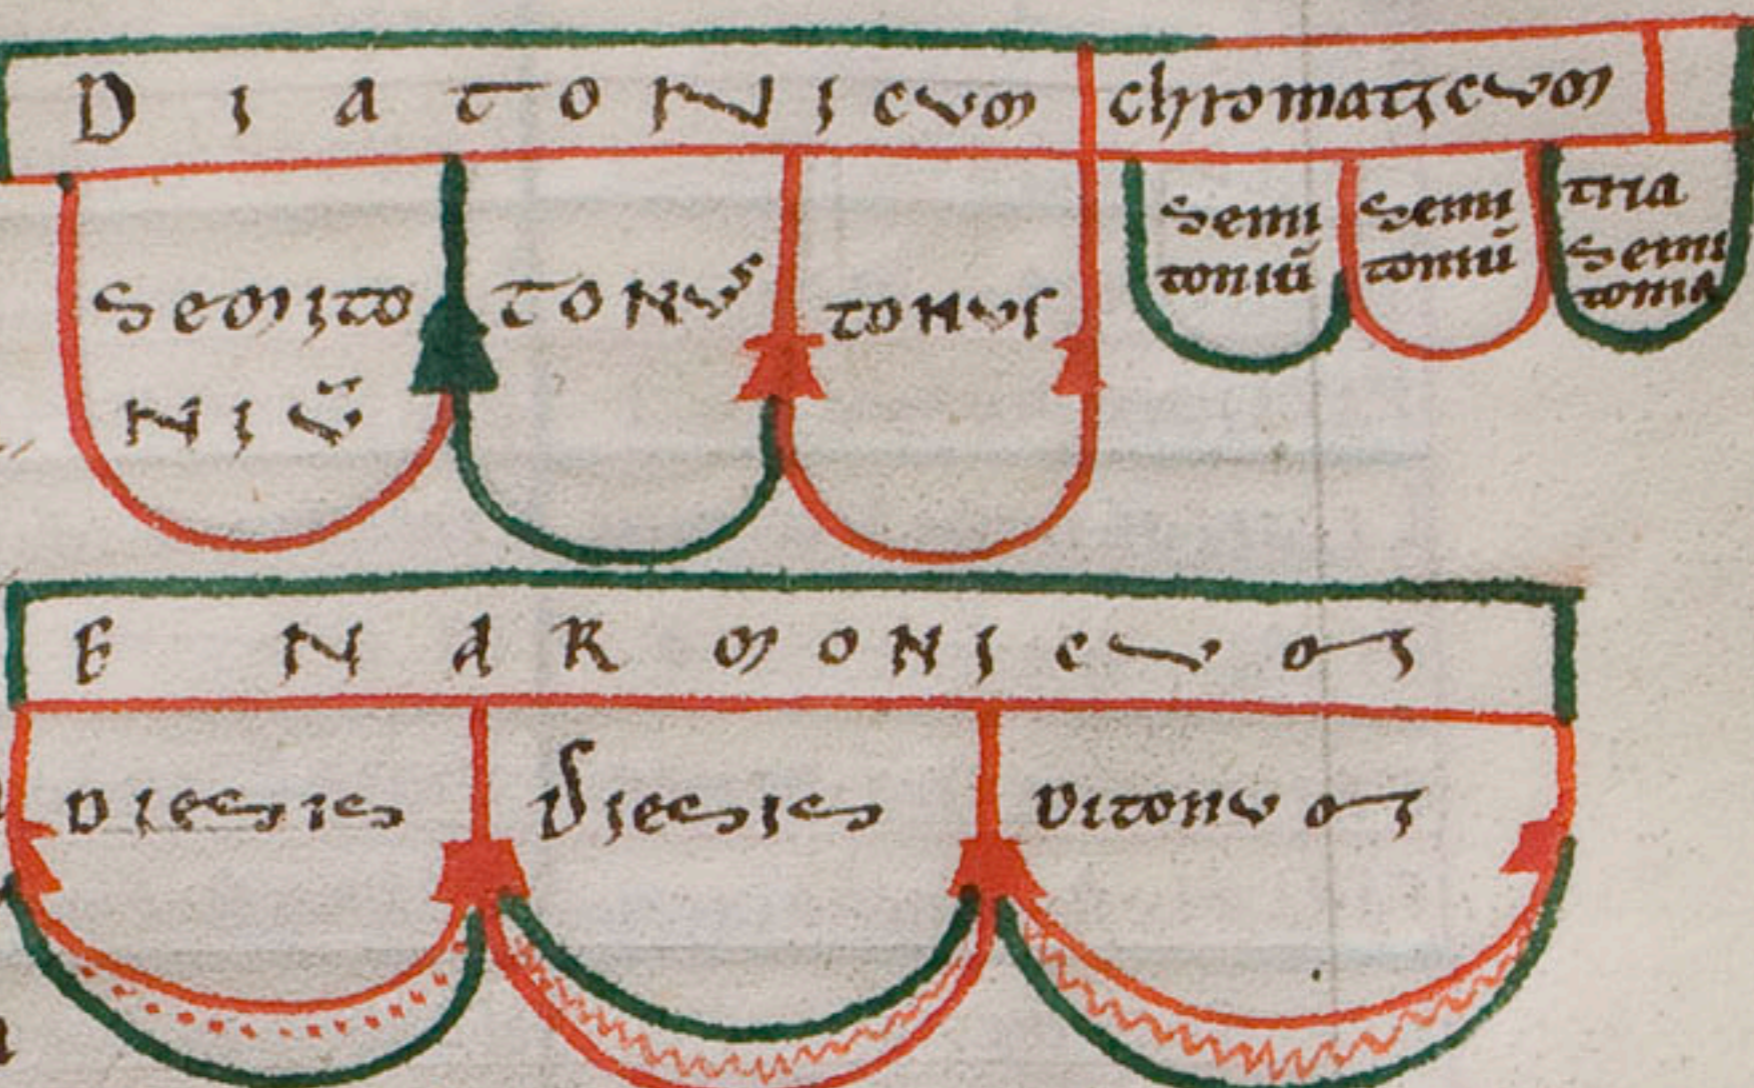 DIATONICUM
chromaticum
Semito
NIŪ
TONUS
TONUS
Semi
toniū
Semi
toniū
tria
Semi
tonia
ENARMONICUM
Diesis
Diesis
Ditonum